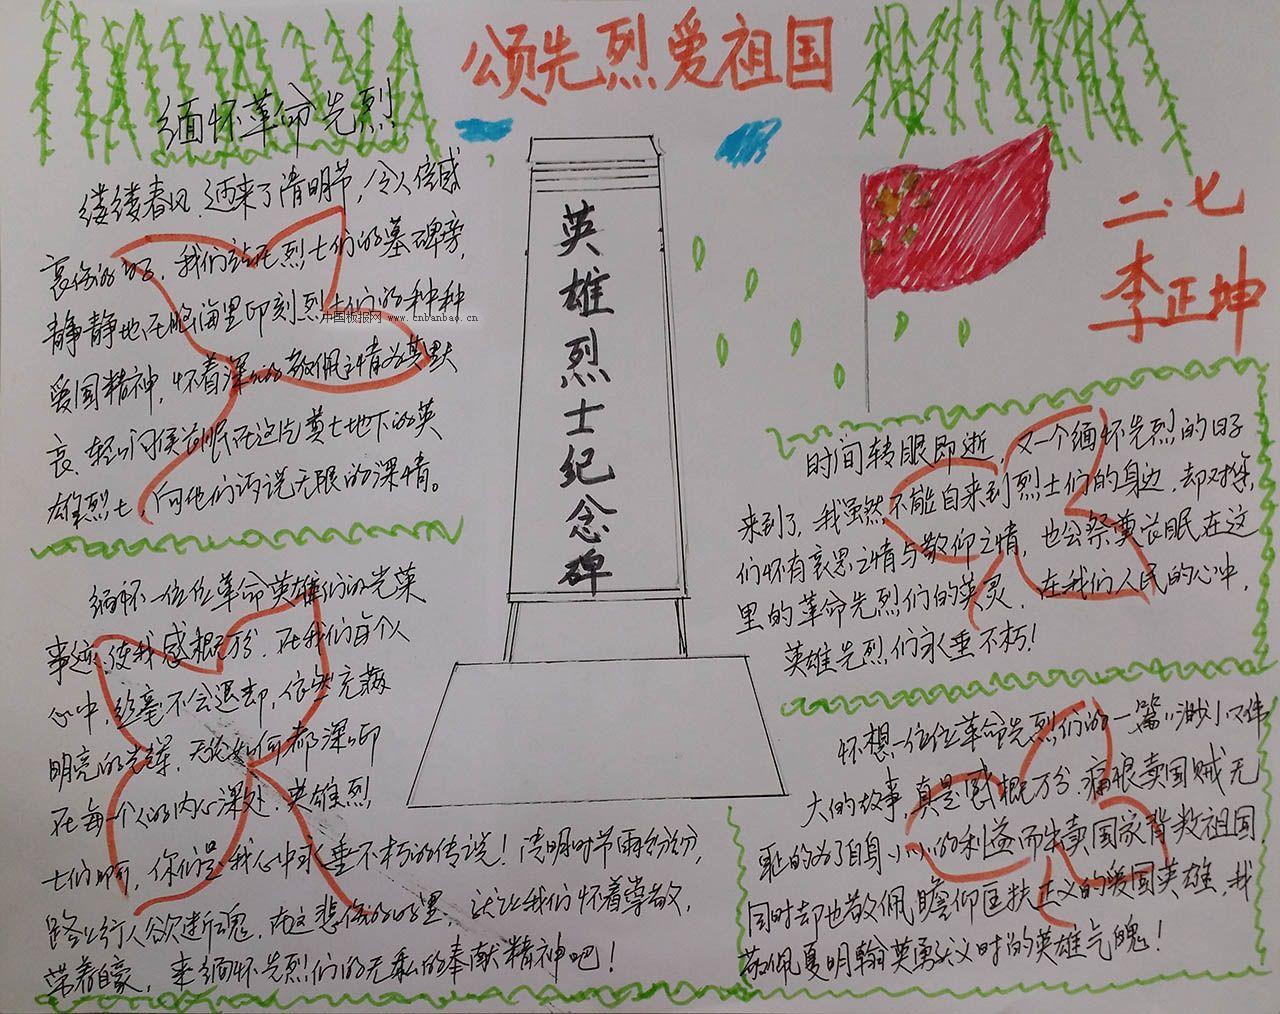 颂先烈爱祖国
缅怀革命先烈
缕缕春风,迎来了清明节,令人倍感
哀伤的时,我们站在烈士们的墓碑旁,
静静地在脑海里印刻烈士们的种种
爱国精神,怀着深深的敬佩之情为其默
哀、轻问侯长眠在这片黄土地下的英
雄烈士,向他们诉说无限的深情。
缅怀一位位革命英雄们的光荣
事迹,使我感概万分,在我们每个人
心中,丝毫不会退却,依然充满
明亮的光辉,无论如何都深深印
在每一个人的内心深处,英雄烈
士们啊,你们是我心中永垂不朽的传说!清明时节雨纷纷,
路上行人欲断魂,在这悲伤的时里,就让我们怀着尊敬,
荣着自豪,来缅怀先烈们的无私的奉献精神吧!
英雄烈士纪念碑
中国板报网
www.cnbanbao.cn
二.七
李正坤
时间转眼即逝,又一个缅怀先烈的日子
来到了,我虽然不能自来到烈士们的身边,却对你
们怀有哀思之情与敬仰之情,也公祭奠长眠在这
里的革命先烈们的英灵,在我们人民的心中,
英雄先烈们永垂不朽!
怀想一位位革命先烈们的一篇篇渺小又伟
大的故事,真是感概万分,痛恨卖国贼无
耻的为了自身小小的利益而出卖国家背叛祖国,
同时却也敬佩瞻仰匡扶正义的爱国英雄,我
敬佩夏明翰英勇就义时的英雄气魄!